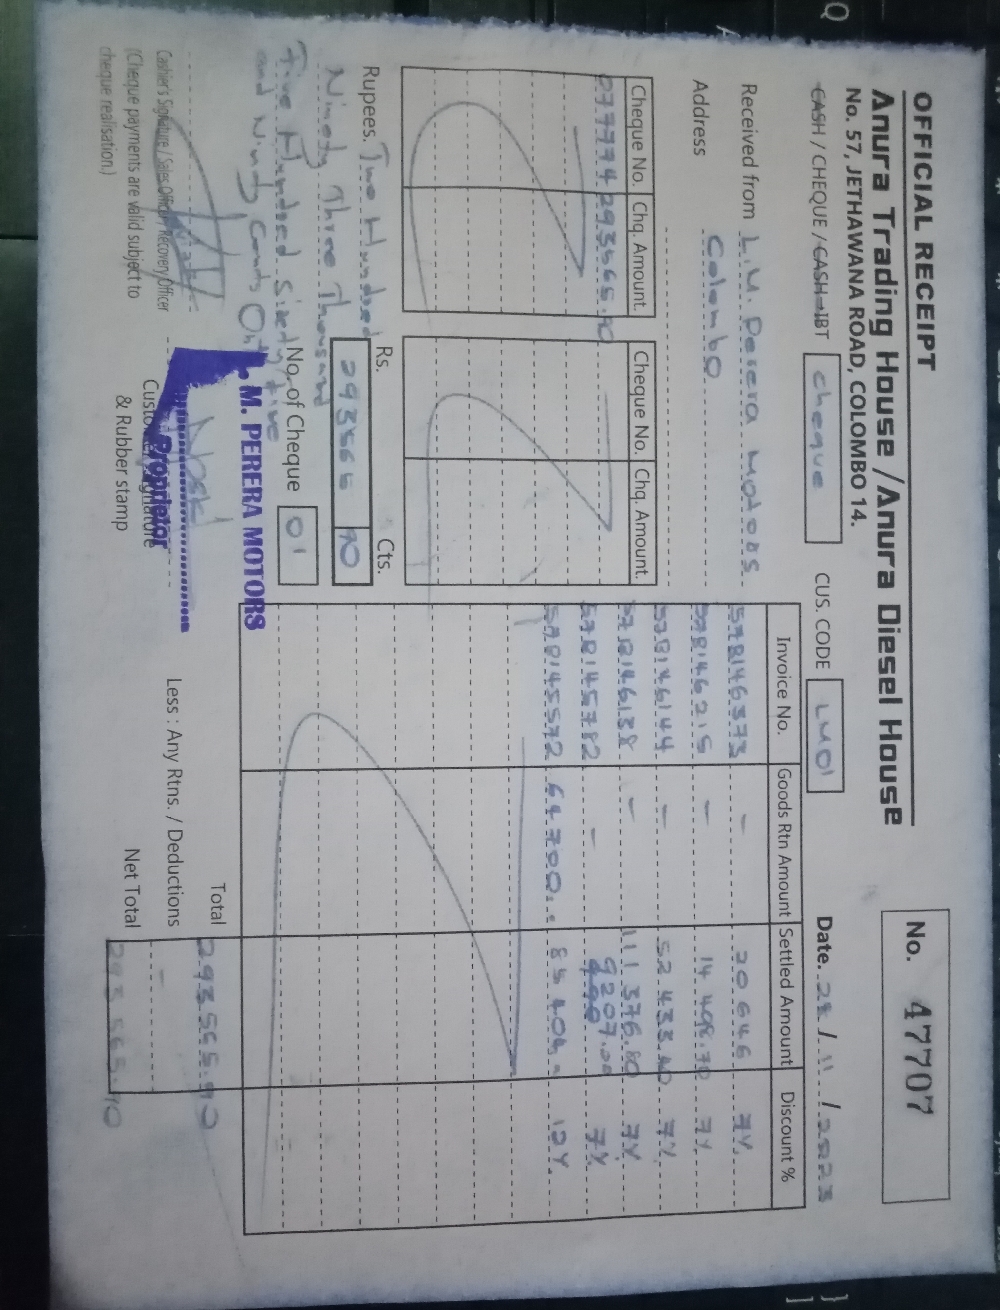 OFFICIAL RECEIPT
Anura Trading House / Anura Diesel House
No. 57, JETHAWANA ROAD, COLOMBO 14.
No. 47707
CASH / CHEQUE / CASH-IBT cheque
CUS. CODE LM01
Date. 28 / 11 / 2023
Received from L.M. Perera Motors
Address Colombo
Cheque No. Chq. Amount
Cheque No. Chq. Amount
Invoice No. Goods Rtn Amount Settled Amount Discount %
578146373 - 20 646 7%
578146215 - 14 498.70 7%
578146144 - 52 433.40 7%
578146138 - 111 376.80 7%
578145782 - 9207.00 7%
578145572 64700.- 85 404.- 12%
Rs. 293565 Cts. 90
Rupees. Two Hundred
Ninety Three Thousand
Five Hundred Sixty Five
and Ninty Cents Only
No. of Cheque 01
L. M. PERERA MOTORS
Proprietor
Total 293 565.90
Less : Any Rtns. / Deductions -
Net Total 293 565.90
Cashier's Signature / Sales Officer / Recovery Officer
(Cheque payments are valid subject to
cheque realisation)
Customer Signature
& Rubber stamp